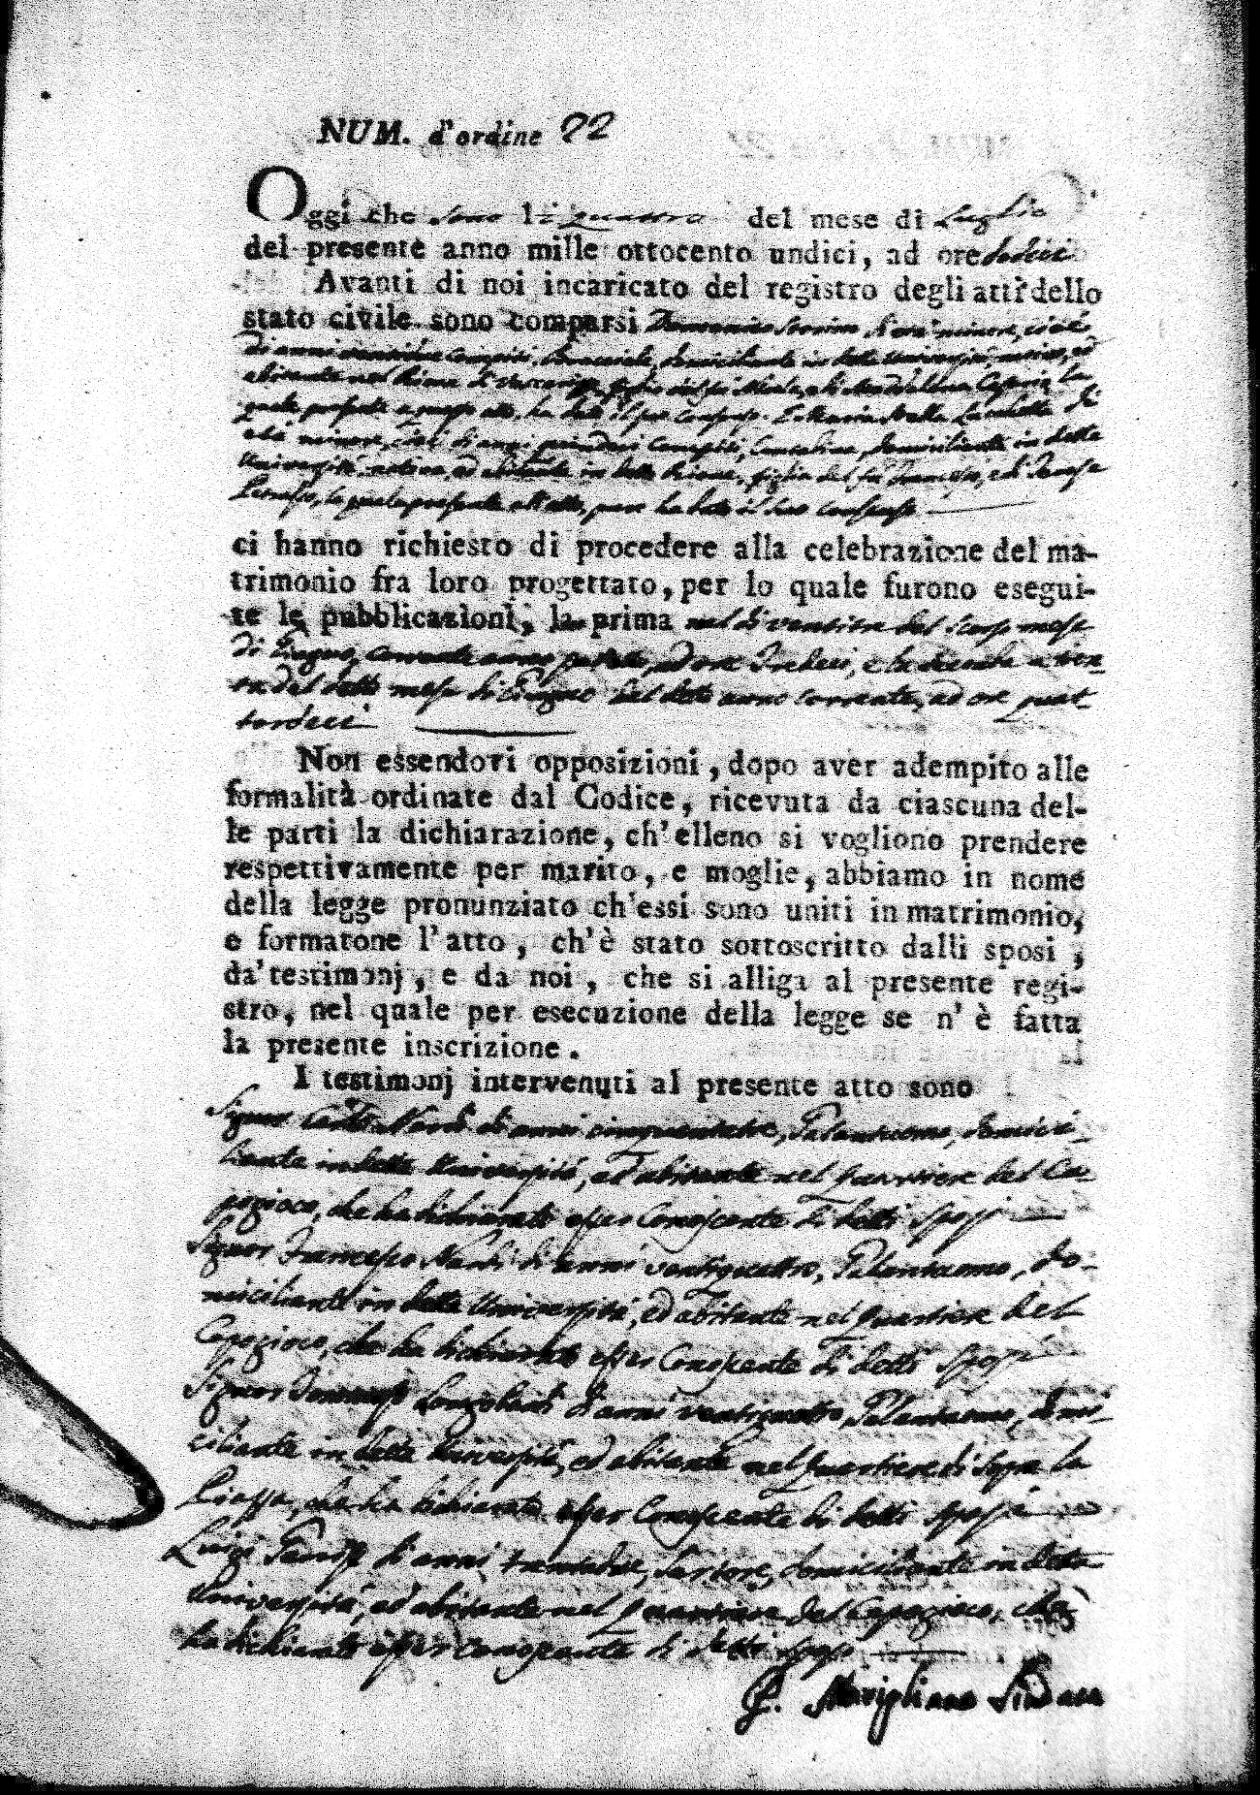 NUM. d'ordine 22
Oggi che sono li quattro del mese di Luglio
del presente anno mille ottocento undici, ad ore dodici
Avanti di noi incaricato del registro degli atti dello
stato civile sono comparsi Domenico di età minore, cioè
di anni compiti, domiciliante in detta Università, nativo, ed
abitante nel Rione di figlio del fù Nicola, e di Maddalena la
quale presente a questo atto, ha dato il suo consenso. E Maria di
età minore, cioè di anni compiti, domiciliante in detta
Università nativa, ed abitante in detto Rione, figlia del fù e di
la quale presente all'atto, pure ha dato il suo consenso
ci hanno richiesto di procedere alla celebrazione del ma-
trimonio fra loro progettato, per lo quale furono esegui-
te le pubblicazioni, la prima nel dì ventitre del scorso mese
di Giugno, corrente anno ad ore tredici, e la seconda a tren
ta del detto mese di Giugno del detto anno corrente, ad ore quat
tordeci
Non essendovi opposizioni, dopo aver adempito alle
formalità ordinate dal Codice, ricevuta da ciascuna del-
le parti la dichiarazione, ch'elleno si vogliono prendere
respettivamente per marito, e moglie, abbiamo in nome
della legge pronunziato ch'essi sono uniti in matrimonio,
e formatone l'atto, ch'è stato sottoscritto dalli sposi,
da' testimonj, e da noi, che si alliga al presente regi-
stro, nel quale per esecuzione della legge se n'è fatta
la presente inscrizione.
I testimonj intervenuti al presente atto sono
Signor Nardi di anni cinquantatre, Galantuomo, domici-
liante in detta Università, ed abitante nel quartiere del Ca-
pogioco, che ha dichiarato esser conoscente di detti sposi
Signor Francesco Nardi di anni ventiquattro, Galantuomo, do-
miciliante in detta Università, ed abitante nel quartiere del
Capogioco, che ha dichiarato esser conoscente di detti sposi
Signor Longobardi di anni ventiquattro, Galantuomo, domi-
ciliante in detta Università, ed abitante nel quartiere di sopra la
Piazza, che ha dichiarato esser conoscente di detti sposi
Luigi di anni trentadue, Sartore, domiciliante in detta
Università, ed abitante nel quartiere del Capogioco, che
ha dichiarato esser conoscente di detti sposi
Marigliano Sindaco